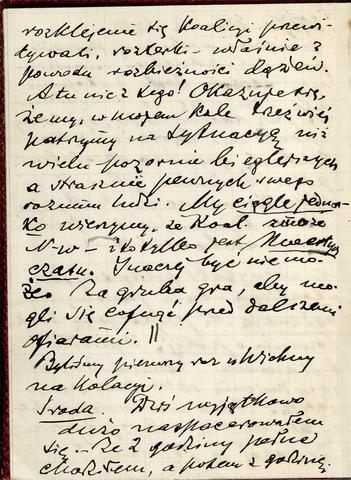 rozklejenie się Koalicji przewi-
dywali, rozterki – właśnie z
powodu rozbieżności dążeń.
A tu nic z tego! Okazuje się,
że my, w moim Kole trzeźwiej
patrzymy na sytuację niż
wielu pozornie bieglejszych
a strasznie pewnych swego
rozumu ludzi. My ciągle jedna-
ko wierzymy, że Koal. zmoże
N-w – i to tylko jest kwestyą
czasu. Inaczej być nie mo-
że. Za gruba gra, aby mo-
gli się cofnąć przed dalszemi
ofiarami. ||
Byliśmy pierwszy raz u
na kolacji.
Środa. Dziś wyjątkowo
dużo naspacerowałem
się. Ze 2 godziny pełne
chodziłem, a potem z godzinę